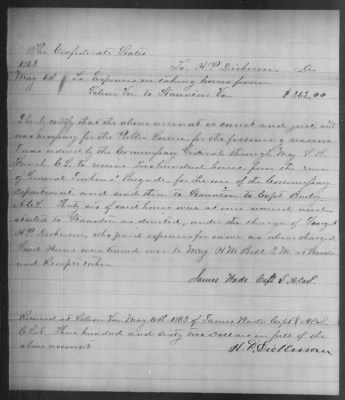 The Confederate States
1863 To H. P. Dickerson Dr
May 6th To Expenses in taking horses from
Salem Va to Staunton Va $362.00
I hereby certify that the above account is correct and just, and
was necessary for the Public Service for the following reasons
I was ordered by the Commissary General through Maj
to receive two hundred horses from the men
of General Jenkins' Brigade, for the use of the Commissary
department, and send them to Staunton to Capt
A.C.S. Thirty six of said horses were at once received and
started to Staunton as directed, under the charge of
H P Dickerson, who paid expenses for same as above charged
Said Horses was turned over to Maj. H M Bell Q.M. at Staunton
and Receipt taken
James Wade Capt &
Received at Salem Va May 6th 1863 of James Wade Capt &
C.S.A. Three hundred and sixty two Dollars in full of the
above account.
H. P. Dickerson